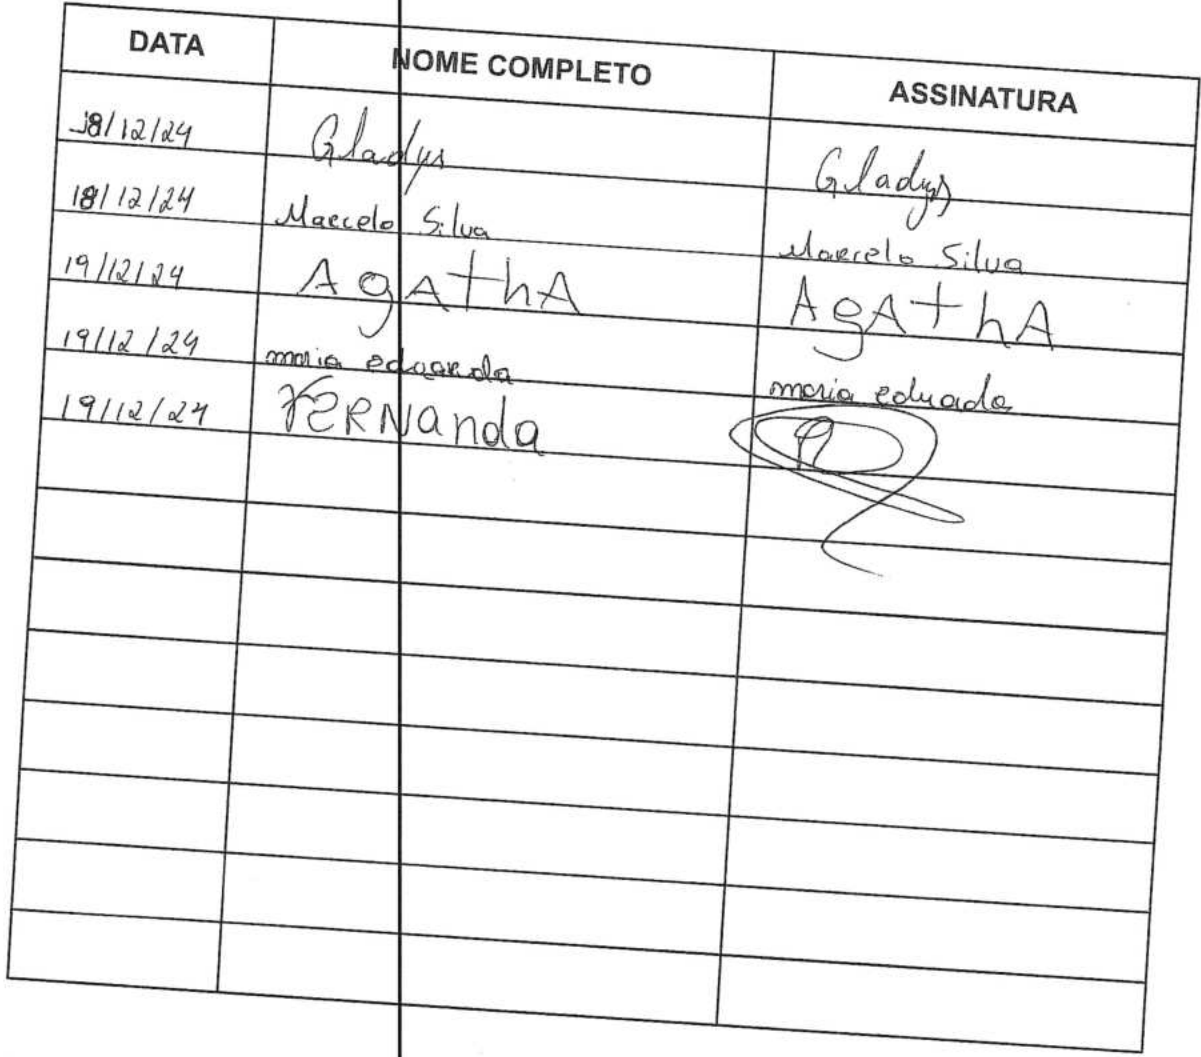 DATA NOME COMPLETO ASSINATURA
18/12/24 Gladys Gladys
18/12/24 Marcelo Silva Marcelo Silva
19/12/24 AgAthA AgAthA
19/12/24 maria eduarda maria eduarda
19/12/24 FERNanda